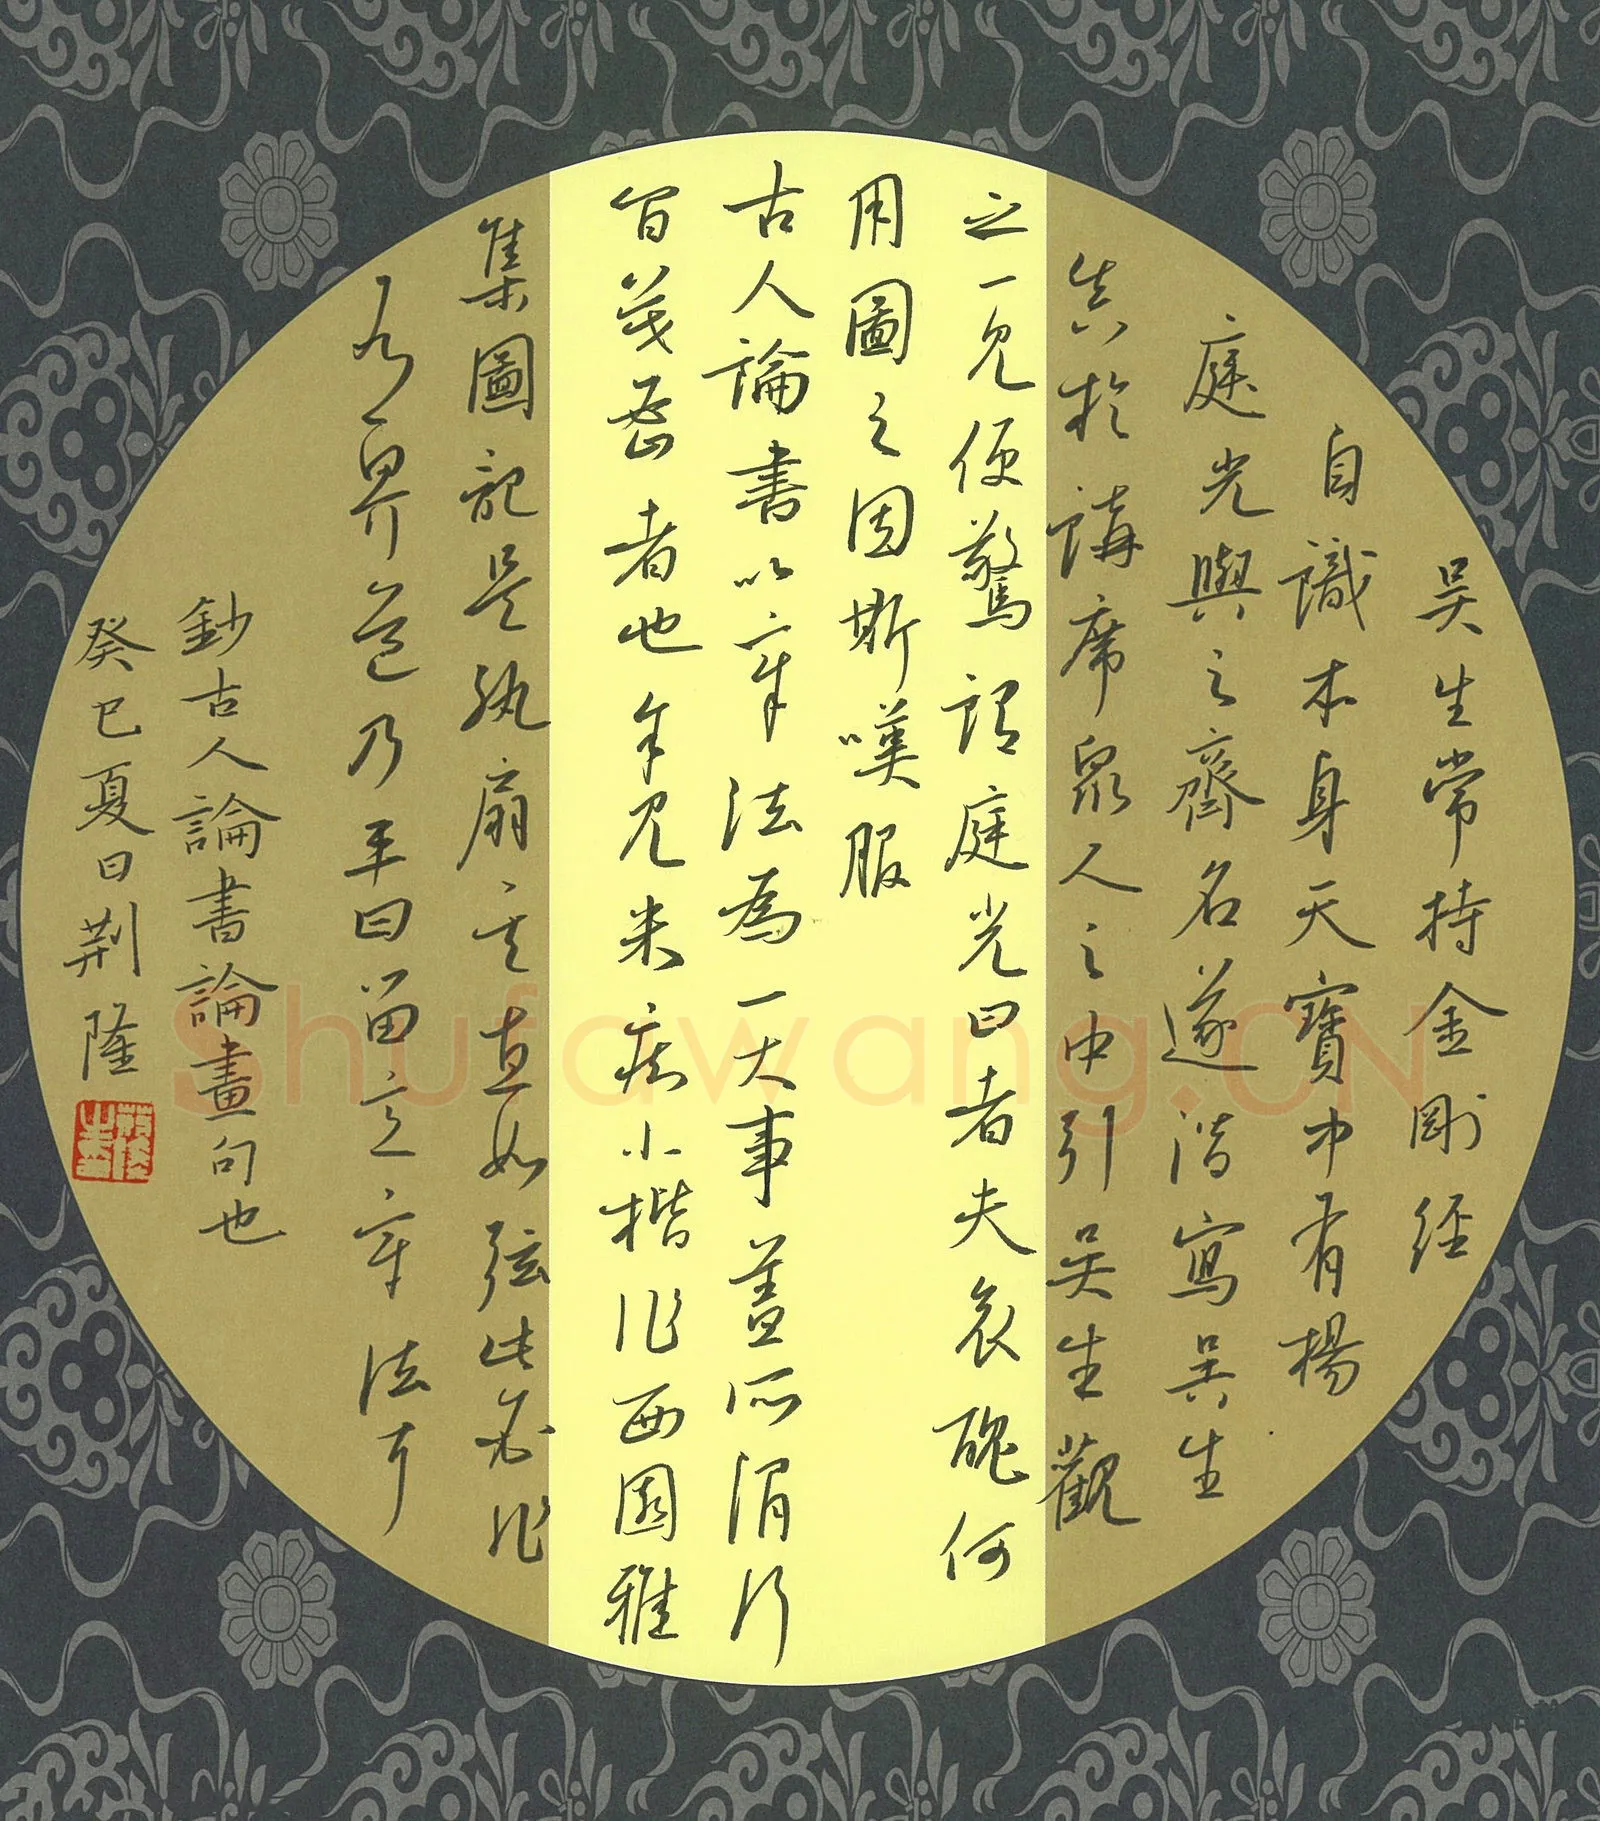 吴生常持金剛經
自識本身天寶中有楊
庭光與之齊名遂潛寫吴生
真於講席眾人之中引吴生觀
之一見便驚語庭光曰老夫衰醜何
用圖之因斯嘆服
古人論書以章法為一大事蓋所謂行
間茂密者也余見米痴小楷作西園雅
集圖記是紈扇其直如弦此必非
有界道乃平日留意章法耳
鈔古人論書論畫句也
癸巳夏日荆隆
Shufawang.CN